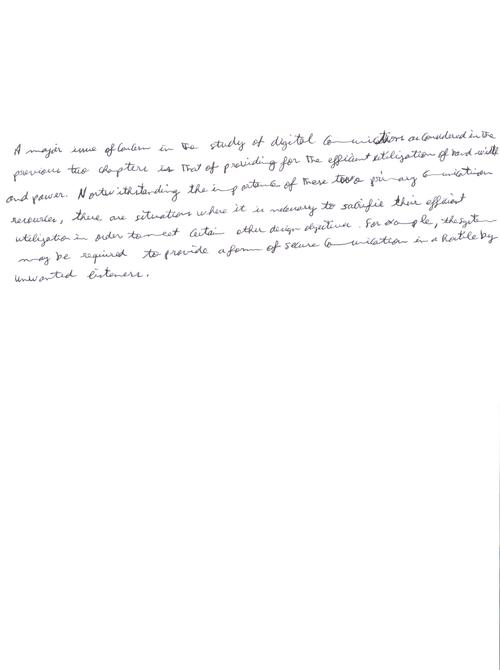 A major issue of Concern in the study of digital Communications as Considered in the
previous two chapters is that of providing for the efficient utilization of band-width
and power. Nortwithstanding the importance of these two primary Communication
resources, there are situations where it is necessary to sacrifie their efficient
utilization in order to meet Certain other design objectives. For example, the system
may be required to provide a form of secure Communication in a hostile by
unwanted listeners.